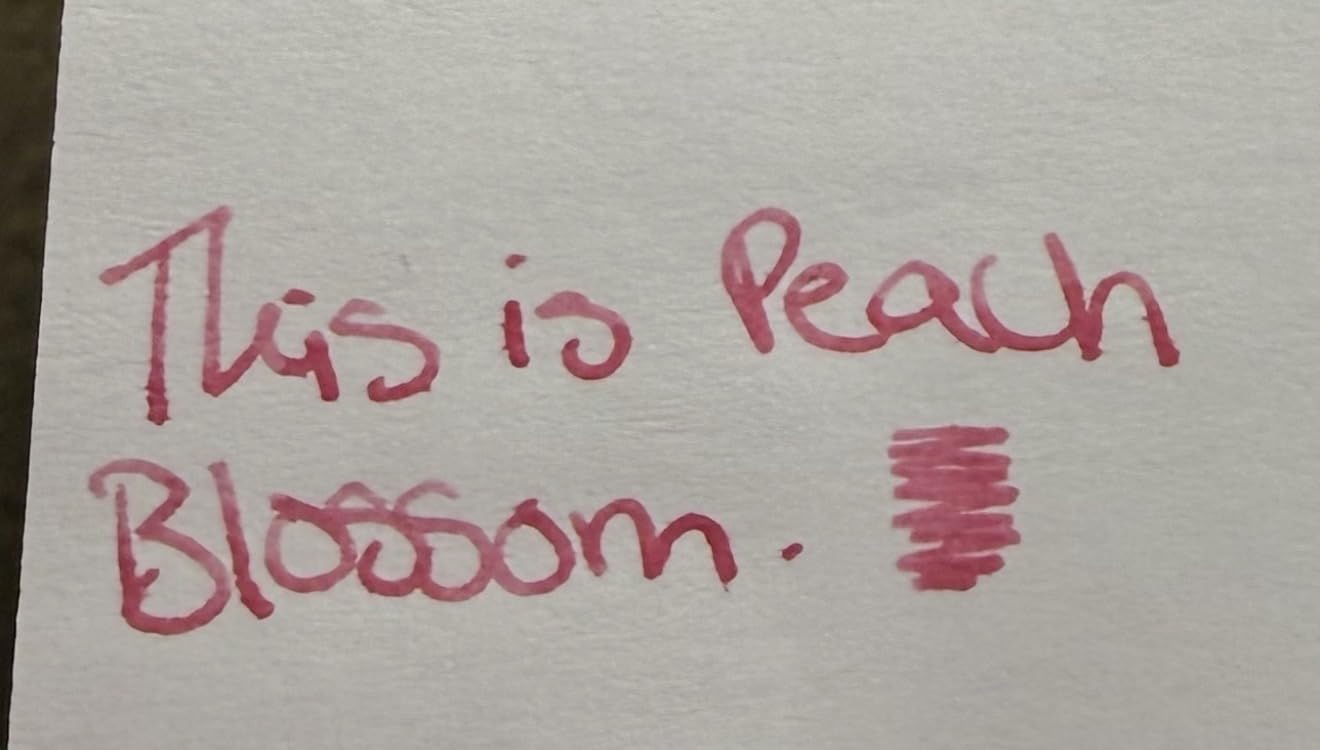 This is Peach
Blossom.